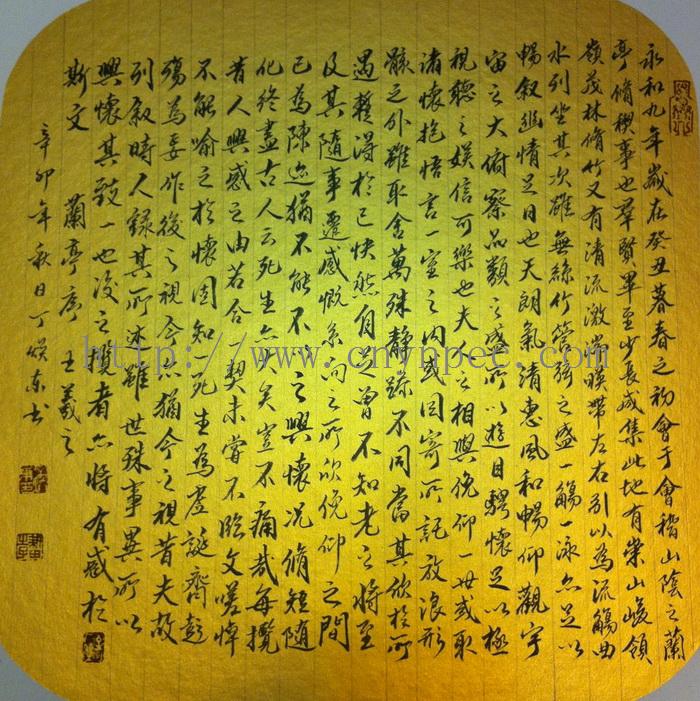 永和九年歲在癸丑暮春之初會于會稽山陰之蘭
亭脩稧事也羣賢畢至少長咸集此地有崇山峻領
嶺茂林脩竹又有清流激湍暎帶左右引以為流觴曲
水列坐其次雖無絲竹管弦之盛一觴一詠亦足以
暢敘幽情是日也天朗氣清惠風和暢仰觀宇
宙之大俯察品類之盛所以遊目騁懷足以極
視聽之娛信可樂也夫人之相與俛仰一世或取
諸懷抱悟言一室之內或因寄所託放浪形
骸之外雖取舍萬殊靜躁不同當其欣於所
遇蹔得於己快然自足曾不知老之將至
及其所之既惓情隨事遷感慨係
向之所欣俛仰之間
已為陳迹猶不能不以之興懷況脩短隨
化終盡古人云死生亦大矣豈不痛哉每攬
昔人興感之由若合一契未嘗不臨文嗟悼
不能喻之於懷固知一死生為虛誕齊彭
殤為妄作後之視今亦猶今之視昔夫故
列敘時人錄其所述雖世殊事異所以
興懷其致一也後之覽者亦將有感於
斯文 蘭亭序 王羲之
辛卯年秋日丁 東书
http://www.cnynpee.com